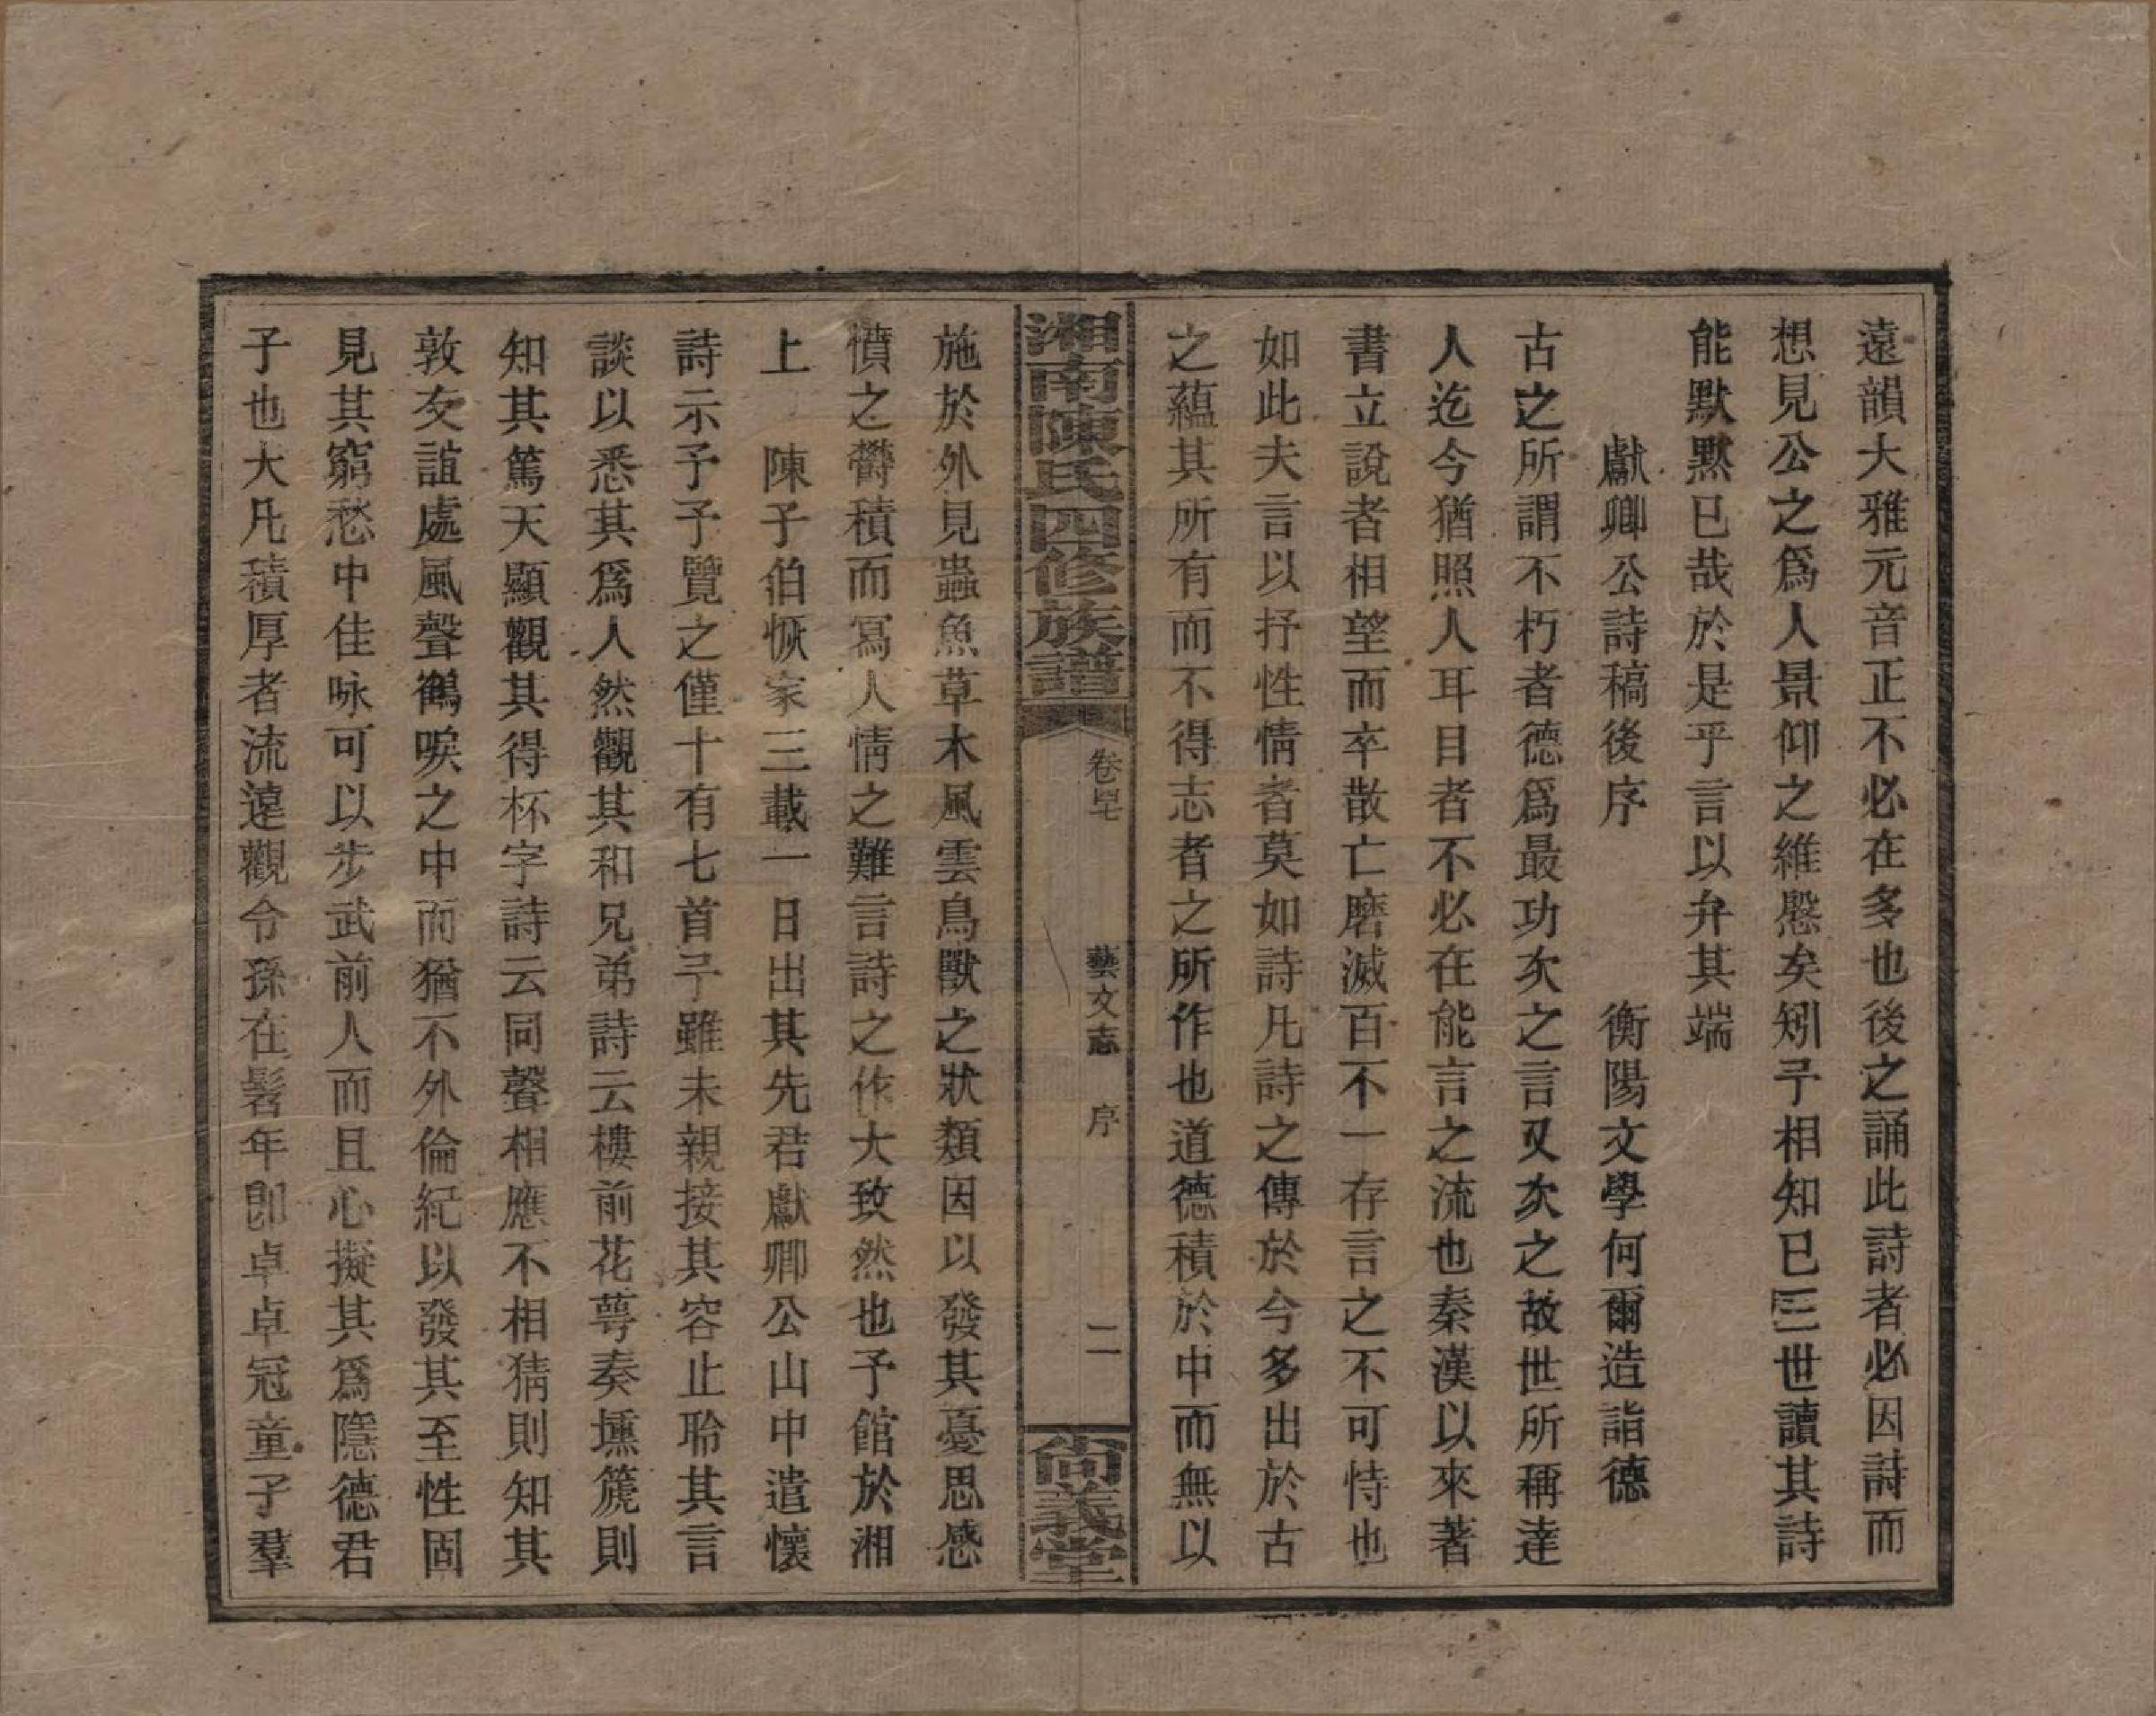 遠韻大雅元音正不必在多也後之誦此詩者必因詩而
想見公之爲人景仰之維慇矣矧予相知已三世讀其詩
能默默已哉於是乎言以弁其端
獻卿公詩稿後序　衡陽文學何爾造詣德
古之所謂不朽者德爲最功次之言又次之故世所稱達
人迄今猶照人耳目者不必在能言之流也秦漢以來著
書立說者相望而卒散亡磨滅百不一存言之不可恃也
如此夫言以抒性情者莫如詩凡詩之傳於今多出於古
之蘊其所有而不得志者之所作也道德積於中而無以
湘南陳氏四修族譜
卷
藝文志　序
二
尙義堂
施於外見蟲魚草木風雲鳥獸之狀類因以發其憂思感
憤之鬱積而寫人情之難言詩之作大致然也予館於湘
上　陳子伯恢家三載一日出其先君獻卿公山中遣懷
詩示予予覽之僅十有七首予雖未親接其容止聆其言
談以悉其爲人然觀其和兄弟詩云樓前花萼奏壎篪則
知其篤天顯觀其得杯字詩云同聲相應不相猜則知其
敦友誼處風聲鶴唳之中而猶不外倫紀以發其至性固
見其窮愁中佳咏可以步武前人而且心擬其爲隱德君
子也大凡積厚者流遠觀令孫在髫年即卓卓冠童子羣